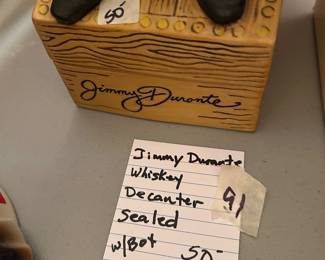 50-
Jimmy Durante
Jimmy Durante
Whiskey
Decanter
91
Sealed
w/Box 50-